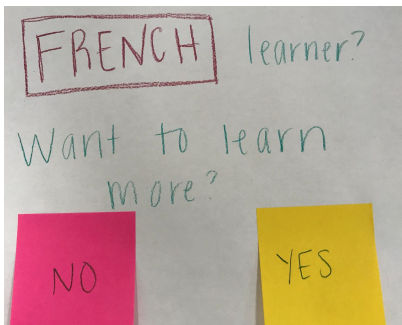 FRENCH learner?
Want to learn
more?
NO YES